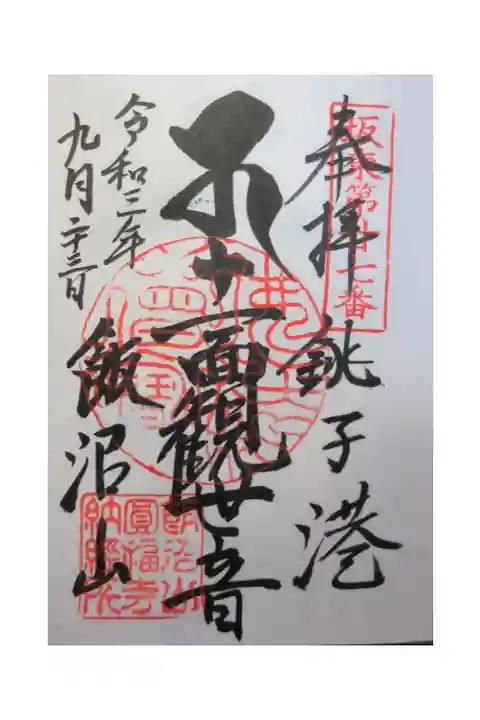 奉拝
坂東第廿七番
銚子港
十一面観世音
令和三年
九月二十三日
飯沼山
飯沼山
圓福寺
納経所